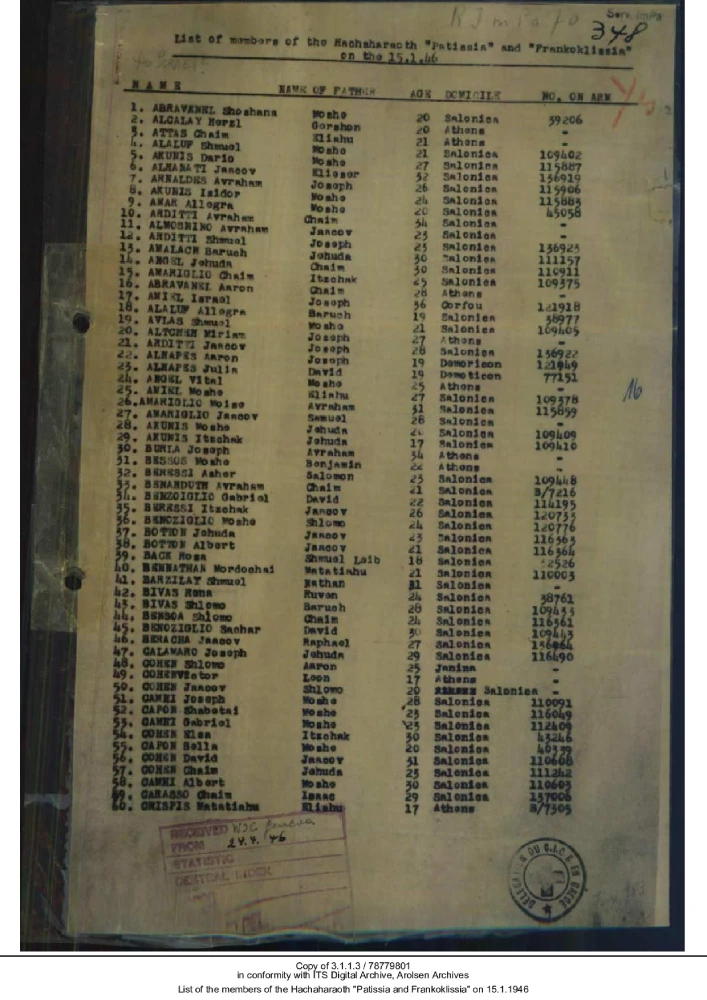 348
List of members of the Hachaharaoth "Patissia" and "Frankoklissia"
on the 15.1.46
NAME NAME OF FATHER AGE DOMICILE NO. ON ARM
1. ABRAVANEL Shoshana Moshe 20 Salonica 39206
2. ALCALAY Herzl Gershon 20 Athens -
3. ATTAS Chaim Eliahu 21 Athens -
4. ALALUF Shmuel Moshe 21 Salonica 109402
5. AKUNIS Dario Moshe 27 Salonica 115887
6. ALHANATI Jaacov Elieser 32 Salonica 136919
7. ARNALDES Avraham Joseph 26 Salonica 115906
8. AKUNIS Isidor Moshe 24 Salonica 115883
9. AMAR Allegra Moshe 20 Salonica 45058
10. ARDITTI Avraham Chaim 34 Salonica -
11. ALMOSNINO Avraham Jaacov 23 Salonica -
12. ARDITTI Shmuel Joseph 23 Salonica 136923
13. AMALACH Baruch Jehuda 30 Salonica 111157
14. ANGEL Jehuda Chaim 30 Salonica 110911
15. AMARIGLIO Chaim Itzchak 25 Salonica 109375
16. ABRAVANEL Aaron Chaim 28 Athens -
17. AMIEL Israel Joseph 36 Corfou 121918
18. ALALUF Allegra Baruch 19 Salonica 38977
19. AVLAS Shmuel Moshe 21 Salonica 109405
20. ALTCHEH Miriam Joseph 27 Athens -
21. ARDITTI Jaacov Joseph 28 Salonica 136922
22. ALHAPES Aaron Joseph 19 Demoticon 121949
23. ALHAPES Julia David 19 Demoticon 77151
24. ANGEL Vital Moshe 25 Athens -
25. AMIEL Moshe Eliahu 27 Salonica 109378
26. AMARIGLIO Moise Avraham 31 Salonica 115859
27. AMARIGLIO Jaacov Samuel 28 Salonica -
28. AKUNIS Moshe Jehuda Salonica 109409
29. AKUNIS Itzchak Jehuda 17 Salonica 109410
30. BURLA Joseph Avraham 34 Athens -
31. BESSOS Moshe Benjamin 22 Athens -
32. BERESSI Asher Salomon 23 Salonica 109448
33. BENARDUTH Avraham Chaim 21 Salonica B/7216
34. BENZOIGLIO Gabriel David 22 Salonica 114195
35. BERESSI Itzchak Jaacov 26 Salonica 120733
36. BENOZIGLIO Moshe Shlomo 24 Salonica 120776
37. BOTTON Jehuda Jaacov 23 Salonica 116363
38. BOTTON Albert Jaacov 21 Salonica 116364
39. BACK Rosa Shmuel Leib 18 Salonica
40. BENNATHAN Mordechai Matatiahu 21 Salonica 110003
41. BARZILAY Shmuel Nathan 31 Salonica -
42. BIVAS Rena Ruven 24 Salonica 38761
43. BIVAS Shlomo Baruch 28 Salonica 109433
44. BENSOA Shlomo Chaim 24 Salonica 116361
45. BENOZIGLIO Sachar David 30 Salonica 109443
46. BERACHA Jaacov Raphael 27 Salonica 136864
47. CALAMARO Joseph Jehuda 29 Salonica 116490
48. COHEN Shlomo Aaron 25 Janina -
49. COHENVictor Leon 17 Athens -
50. COHEN Jaacov Shlomo 20 Salonica -
51. CAMHI Joseph Moshe 28 Salonica 110091
52. CAPON Shabetai Moshe 23 Salonica 116049
53. CAMHI Gabriel Moshe 23 Salonica 112409
54. COHEN Elsa Itzchak 30 Salonica 43246
55. CAPON Bella Moshe 20 Salonica 40339
56. COHEN David Jaacov 31 Salonica 110608
57. COHEN Chaim Jehuda 23 Salonica 111242
58. CAMHI Albert Moshe 30 Salonica 110603
59. CARASSO Chaim Isaac 29 Salonica 137006
60. CRISPIS Matatiahu Eliahu 17 Athens B/7305
16
RECEIVED WJC Geneva
FROM 24.4.46
STATISTIC
CENTRAL INDEX
DELEGATION DU C.I.C.R. EN GRECE
Copy of 3.1.1.3 / 78779801
in conformity with ITS Digital Archive, Arolsen Archives
List of the members of the Hachaharaoth "Patissia and Frankoklissia" on 15.1.1946